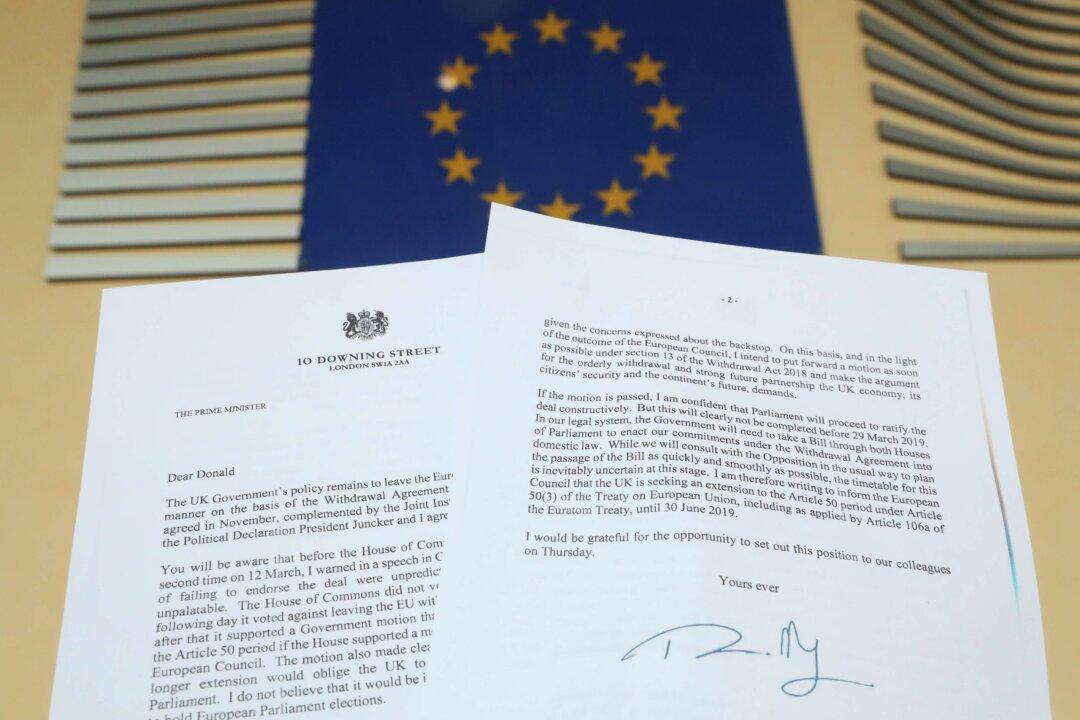 10 DOWNING STREET
LONDON SW1A 2AA
THE PRIME MINISTER
Dear Donald
The UK Government's policy remains to leave the Eur
manner on the basis of the Withdrawal Agreement
agreed in November, complemented by the Joint Ins
the Political Declaration President Juncker and I agre
You will be aware that before the House of Com
second time on 12 March, I warned in a speech in G
of failing to endorse the deal were unpredic
unpalatable. The House of Commons did not v
following day it voted against leaving the EU wit
after that it supported a Government motion tha
the Article 50 period if the House supported a m
European Council. The motion also made clea
longer extension would oblige the UK to
Parliament. I do not believe that it would be i
to hold European Parliament elections.
- 2 -
given the concerns expressed about the backstop. On this basis, and in the light
of the outcome of the European Council, I intend to put forward a motion as soon
as possible under section 13 of the Withdrawal Act 2018 and make the argument
for the orderly withdrawal and strong future partnership the UK economy, its
citizens' security and the continent's future, demands.
If the motion is passed, I am confident that Parliament will proceed to ratify the
deal constructively. But this will clearly not be completed before 29 March 2019.
In our legal system, the Government will need to take a Bill through both Houses
of Parliament to enact our commitments under the Withdrawal Agreement into
domestic law. While we will consult with the Opposition in the usual way to plan
the passage of the Bill as quickly and smoothly as possible, the timetable for this
is inevitably uncertain at this stage. I am therefore writing to inform the European
Council that the UK is seeking an extension to the Article 50 period under Article
50(3) of the Treaty on European Union, including as applied by Article 106a of
the Euratom Treaty, until 30 June 2019.
I would be grateful for the opportunity to set out this position to our colleagues
on Thursday.
Yours ever